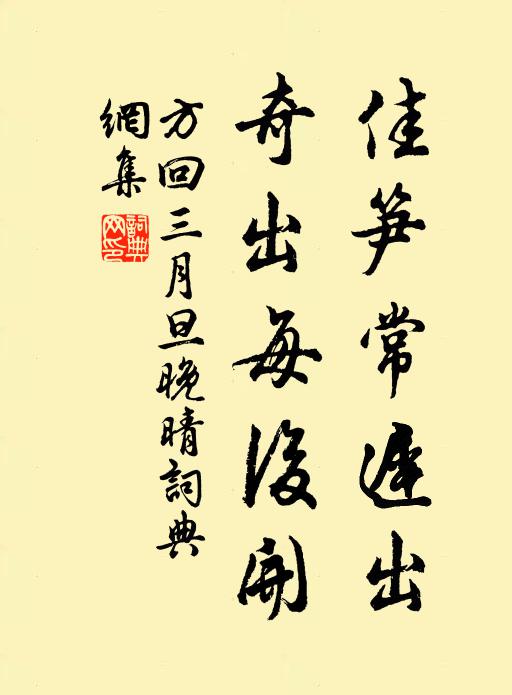 佳笋常遲出
奇出每後開
方回三月旦晚晴詞典
網集
詞典網印